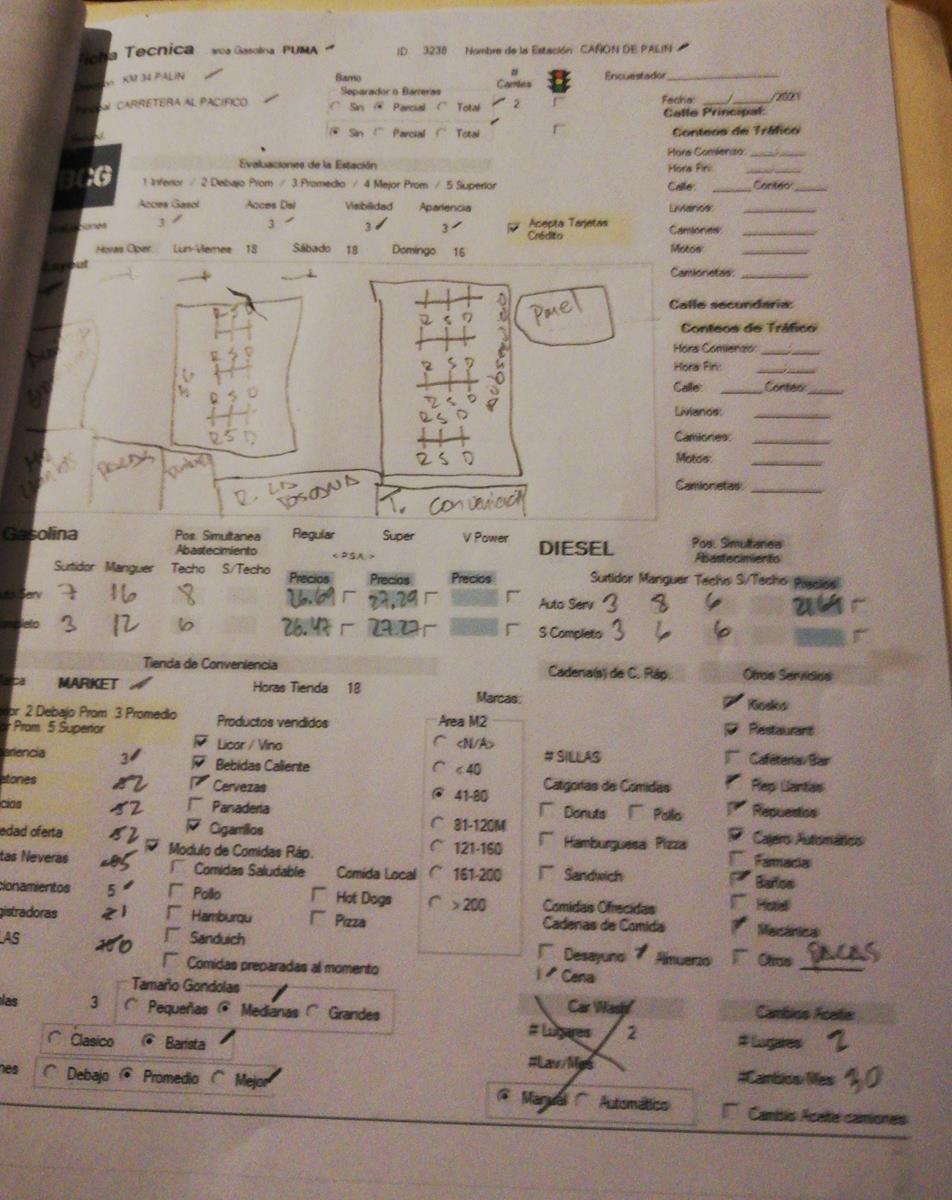 Ficha Tecnica arca Gasolina PUMA ID 3238 Nombre de la Estación CAÑON DE PALIN
KM 34 PALIN Barrio # Carriles Encuestador
CARRETERA AL PACIFICO Separador o Barreras
Sin Parcial Total 2 Fecha: ___/___/2021
Sin Parcial Total
Calle Principal:
Conteos de Tráfico
BCG Evaluaciones de la Estación Hora Comienzo:
1 Inferior / 2 Debajo Prom / 3 Promedio / 4 Mejor Prom / 5 Superior Hora Fin:
Calle: Conteo:
Acces Gasol Acces Dsl Visibilidad Apariencia
aluaciones 3 3 3 3 Acepta Tarjetas Crédito
Livianos:
Camiones:
Horas Oper. Lun-Viernes 18 Sábado 18 Domingo 16 Motos:
Layout Camionetas:
R S D
R S D
R S D
R S D
SC
R S D
R S D
R S D
R S D
Autoservicio
Calle secundaria:
Conteos de Tráfico
Hora Comienzo:
Hora Fin:
Calle: Conteo:
Livianos:
Camiones:
Motos:
Camionetas:
PACAS
R. LA TOSCANA
T.
Gasolina Pos. Simultanea Abastecimiento Regular Super V Power DIESEL Pos. Simultanea Abastecimiento
<PSA>
Surtidor Manguer Techo S/Techo Precios Precios Precios Surtidor Manguer Techo S/Techo Precios
uto Serv 7 16 8 26.69 27.29 Auto Serv 3 8 6 21.69
ompleto 3 12 6 26.47 27.27 S Completo 3 6 6
Tienda de Conveniencia Cadena(s) de C. Ráp. Otros Servicios
arca MARKET Horas Tienda 18
Marcas:
ior 2 Debajo Prom 3 Promedio
or Prom 5 Superior
Productos vendidos
Area M2
Licor / Vino <N/A>
Bebidas Caliente < 40
Cervezas 41-80
Panaderia 81-120M
Cigarrillos 121-160
161-200
> 200
ariencia 3
52
cios 52
edad oferta 52
tas Neveras
cionamientos 5
gistradoras 21
LAS
Modulo de Comidas Ráp.
Comidas Saludable Comida Local
Pollo Hot Dogs
Hamburgu Pizza
Sanduich
Comidas preparadas al momento
# SILLAS
Catgorias de Comidas
Donuts Pollo
Hamburguesa Pizza
Sandwich
Comidas Ofrecidas
Cadenas de Comida
Desayuno Almuerzo
Cena
Kiosko
Restaurant
Cafeteria/Bar
Rep Llantas
Repuestos
Cajero Automático
Farmacia
Baños
Hotel
Mecánica
Otros PACAS
Tamaño Gondolas
las 3 Pequeñas Medianas Grandes
Clasico Barista
nes Debajo Promedio Mejor
Car Wash
# Lugares 2
#Lav/Mes
Manual Automático
Cambios Aceite
# Lugares 2
#Cambios/Mes 30
Cambio Aceite camiones